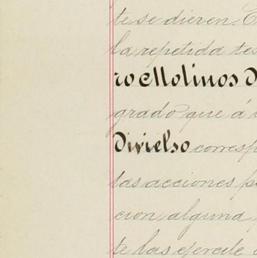 te se dieren. C
la repetida tes
ro Molinos D
grado que á
Divielso corresp
las acciones p
cion alguna
te has ejercite